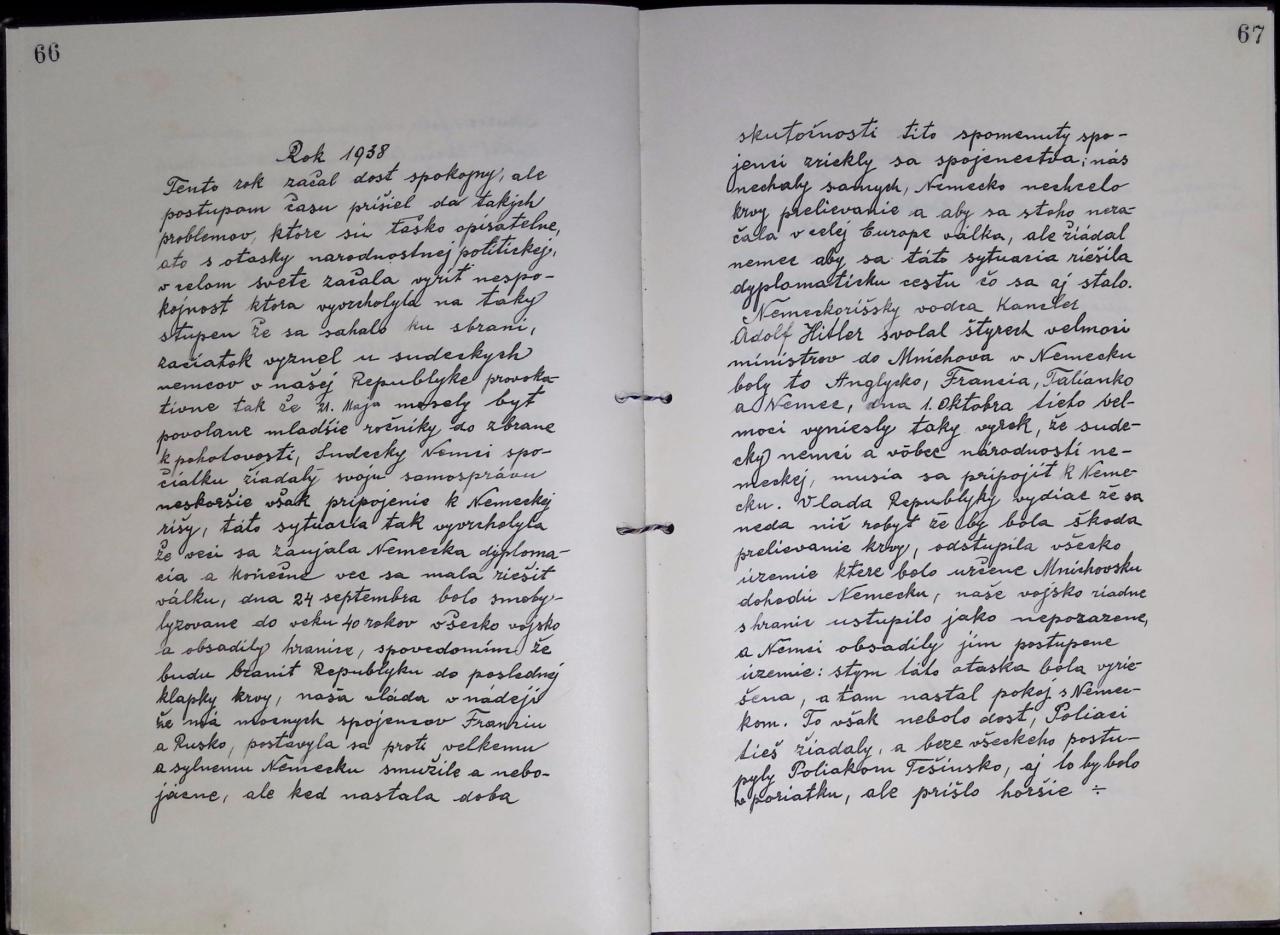 66
Rok 1938
Tento rok začal dost spokojny, ale
postupom času prišiel da takých
problemov, ktore su taško opisatelne,
ato s otasky narodnostnej politickej,
v celom svete začala vyrit nespo-
kojnost ktora vyvrcholyla na taky
stupen že sa sahalo ku sbrani,
začiatok vyznel u sudeckych
nemcov v našej Republyke provoka-
tivne tak že 21. Maja mosely byt
povolane mladšie ročniky do zbrane
k pohotovosti, Sudecky Nemci spo-
čiatku žiadaly svoju samosprávu
neskoršie však pripojenie k Nemeckej
rišy, táto sytuacia tak vyvrcholyla
že veci sa zaujala Nemecka dyploma-
cia a konečne vec sa mala riešit
válku, dna 24 septembra bolo smoby-
lyzovane do veku 40 rokov všecko vojsko
a obsadily hranice, spovedomim že
budu branit Republyku do poslednej
klapky krvy, naša vláda v nádeji
že má mocnych spojencov Franciu
a Rusko, postavyla sa proti velkemu
a sylnemu Nemecku smužile a nebo-
jácne, ale ked nastala doba
67
skutočnosti tito spomenuty spo-
jenci zriekly sa spojenectva; nás
nechaly samych, Nemecko nechcelo
krvy prelievanie a aby sa stoho neza-
čala v celej Europe válka, ale žiádal
nemec aby sa táto sytuacia riešila
dyplomaticku cestu čo sa aj stalo.
Nemeckorišsky vodca Kancler
Adolf Hitler svolal štyrech velmoci
ministrov do Mnichova v Nemecku
boly to Anglycko, Francia, Talianko
a Nemec, dna 1. Oktobra tieto vel-
moci vyniesly taky vyrok, že sude-
cky nemci a vôbec národnosti ne-
meckej, musia sa pripojit k Neme-
cku. Vlada Republyky vydiac že sa
neda nič robyt že by bola škoda
prelievanie krvy, odstupila všecko
územie ktere bolo určene Mnichovsku
dohodú Nemecku, naše vojsko riadne
s hranic ustupilo jako neporazene,
a Němci obsadily jim postupene
územie: stym táto otaska bola vyrie-
šena, a tam nastal pokoj s Nemec-
kom. To však nebolo dost, Poliaci
tiež žiadaly, a beze všeckeho postu-
pyly Poliakom Tešinsko, aj to by bolo
v poriatku, ale prišlo horšie ÷